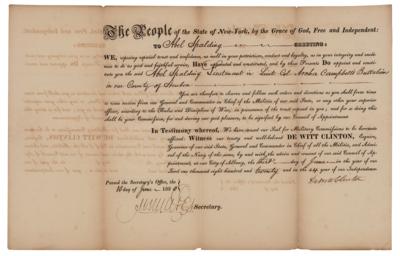 The People of the State of New-York, by the Grace of God, Free and Independent:
TO Abel Spalding GREETING:
WE, reposing especial trust and confidence, as well in your patriotism, conduct and loyalty, as in your integrity and readiness
to do us good and faithful service, Have appointed and constituted, and by these Presents Do appoint and consti-
tute you the said Abel Spalding Lieutenant in Lieut Col Campbells Battalion
in our County of
You are therefore to observe and follow such orders and directions as you shall from time
to time receive from our General and Commander in Chief of the Militia of our said State, or any other your superior
officer, according to the Rules and Discipline of War; in pursuance of the trust reposed in you; and for so doing this
shall be your Commission, for and during our good pleasure, to be signified by our Council of Appointment.
In Testimony whereof, We have caused our Seal for Military Commissions to be hereunto
affixed. Witness our trusty and well-beloved DE WITT CLINTON, Esquire,
Governor of our said State, General and Commander in Chief of all the Militia, and Admi-
ral of the Navy of the same, by and with the advice and consent of our said Council of Ap-
pointment, at our City of Albany, the day of June in the year of our
Lord one thousand eight hundred and twenty and in the 44 year of our Independence.
Passed the Secretary's Office, the
16 day of June 1820
DeWitt Clinton
Secretary.